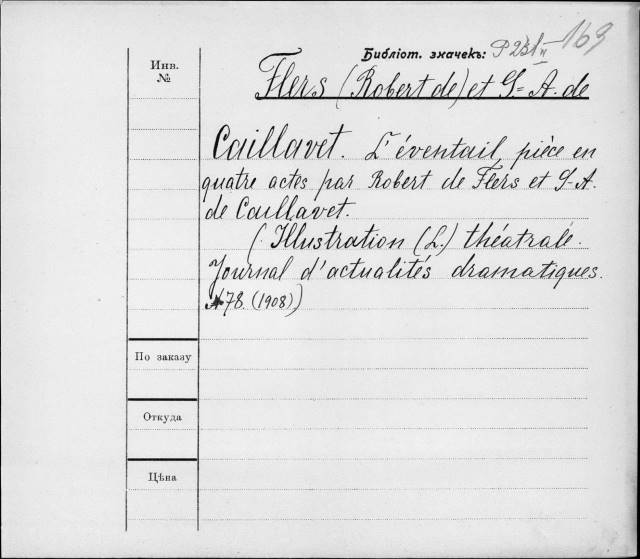 Библіот. значекъ: P 231/II - 169
Инв.
№
Flers (Robert de) et G= A. de
Caillavet. L'éventail, pièce en
quatre actes par Robert de Flers et G-A.
de Caillavet.
(Illustration (L.) théatrale.
Journal d'actualités dramatiques.
№ 78. (1908))
По заказу
Откуда
Цѣна